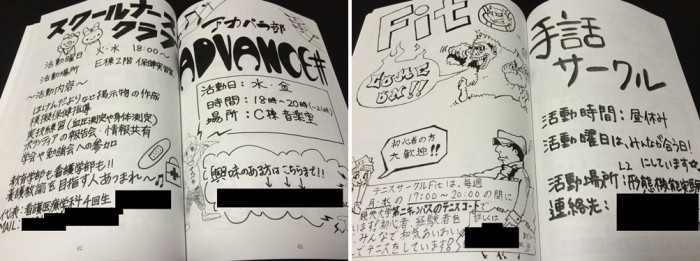 スクールナース
クラブ
活動曜日 火・水 18:00〜
活動場所 E棟2階 保健実習室
〜活動内容〜
ほけんだよりなど掲示物の作成
模擬保健指導
実技練習(血圧測定や身体測定)
ボランティアの報告会・情報共有
学会や勉強会への参加
教育学部も看護学部も!!
養護教諭を目指す人あつまれ〜
代表:看護医療学科4回生
MAIL:
42
アカペラ部
ADVANCE#
活動日:水・金
時間:18時〜20時(〜21時)
場所:C棟 音楽室
興味のある方はこちらまで!!
43
Fit
COME
ON!!
初心者の方
大歓迎!!
テニスサークルFitは、毎週
月・水の17:00〜20:00の間に
大学第二キャンパスのテニスコートで
います!初心者、経験者を
みんなで和気あいあい
でテニスをしています!
詳しくは
手話
サークル
活動時間:昼休み
活動曜日は、みんなが会う日!
にしています
活動場所:形態機能実習
連絡先: